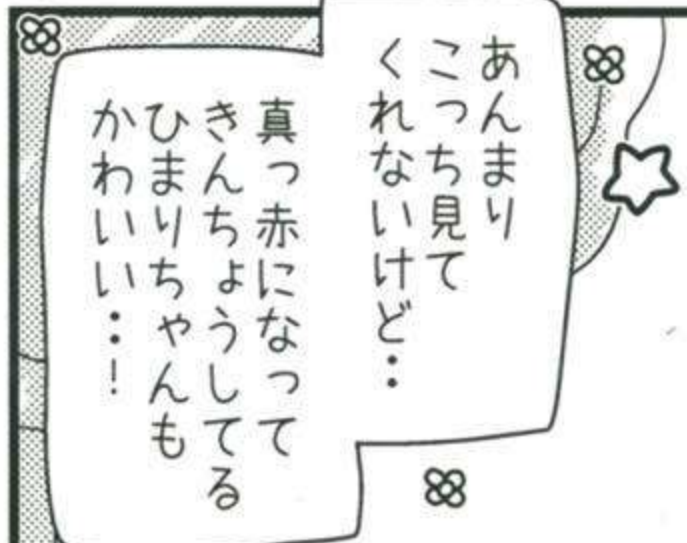 あんまり
こっち見て
くれないけど‥
真っ赤になって
きんちょうしてる
ひまりちゃんも
かわいい‥！